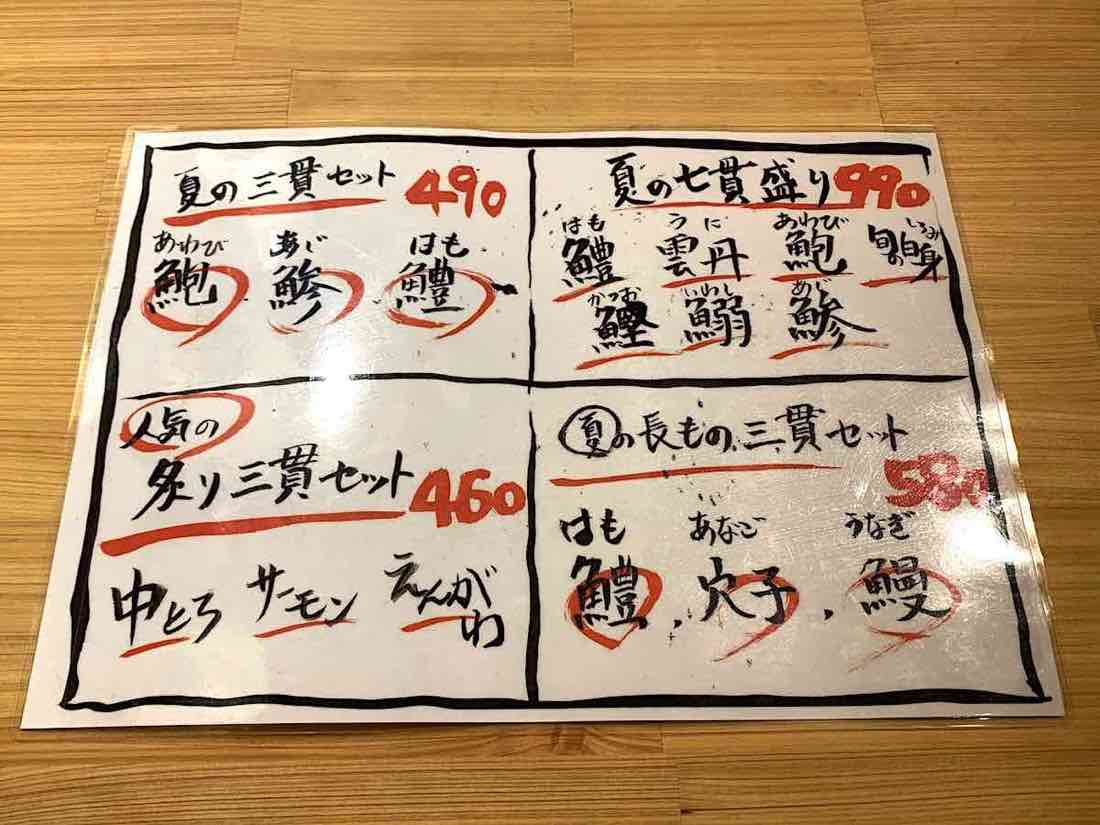 夏の三貫セット 490
あわび あじ はも
鮑 鯵 鱧
夏の七貫盛り 990
はも うに あわび しろみ
鱧 雲丹 鮑 旬の白身
かつお いわし あじ
鰹 鰯 鯵
人気の
炙り三貫セット 460
中とろ サーモン えんがわ
夏の長もの三貫セット
580
はも あなご うなぎ
鱧、穴子、鰻